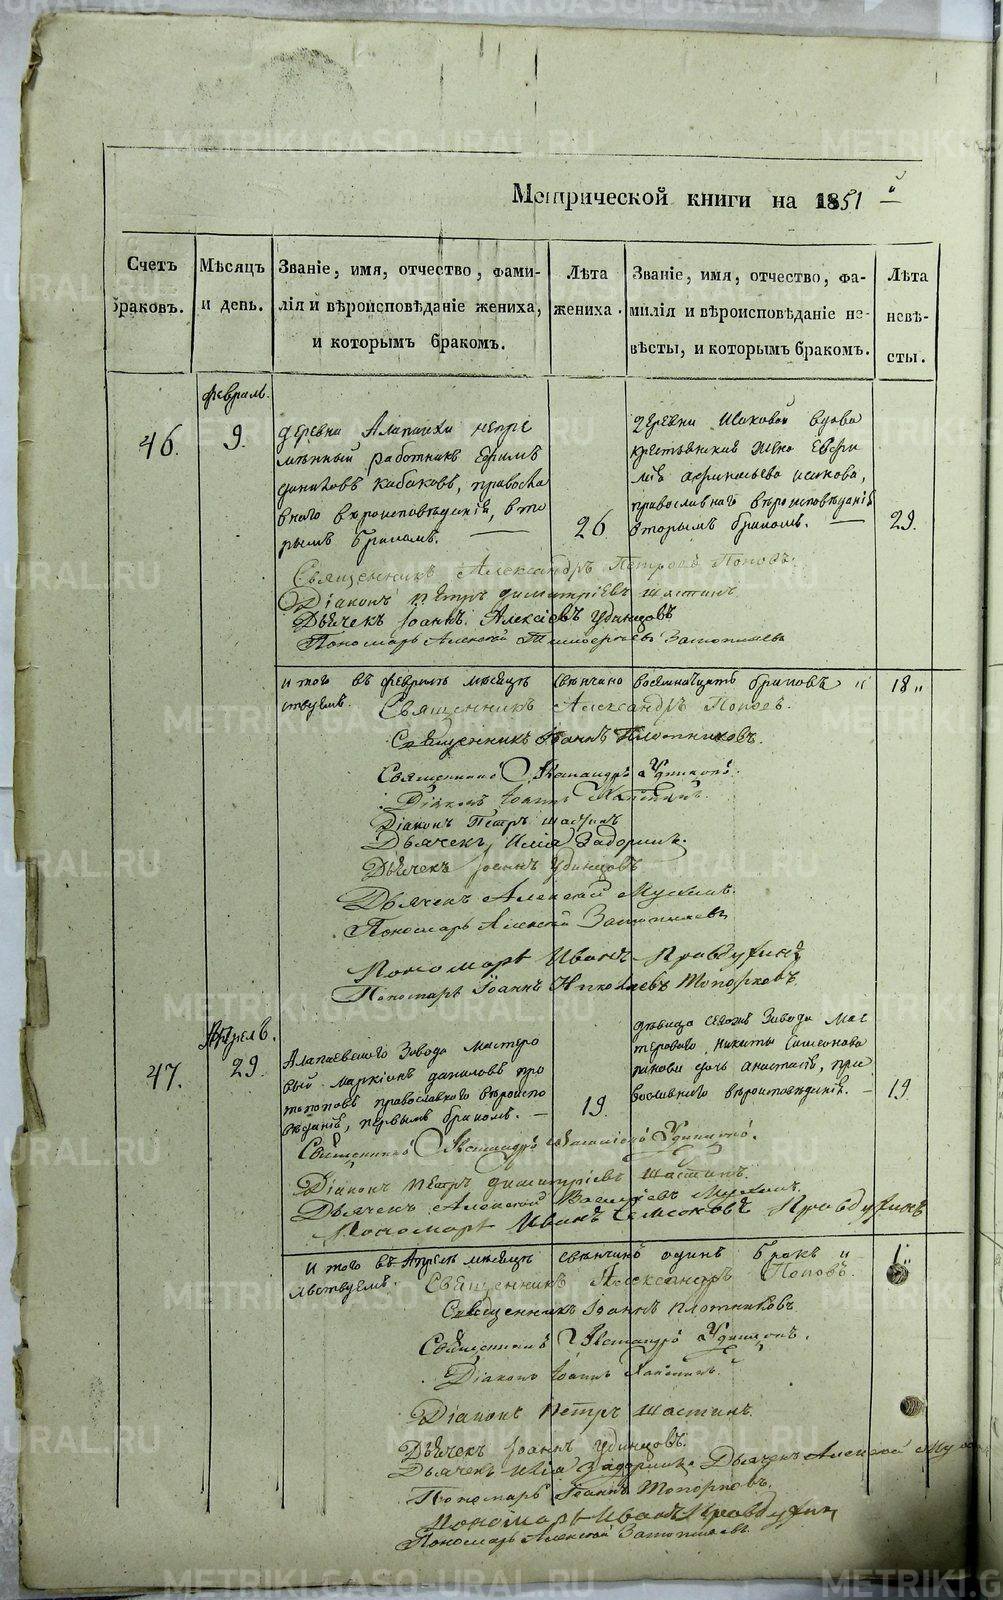 Метрической книги на 1851й
Счетъ браковъ.
Мѣсяцъ и день.
Званіе, имя, отчество, фами-
лія и вѣроисповѣданіе жениха,
и которымъ бракомъ.
Лѣта жениха.
Званіе, имя, отчество, фа-
милія и вѣроисповѣданіе не-
вѣсты, и которымъ бракомъ.
Лѣта невѣ-
сты.
февраль.
46.
9.
деревни Алапаихи непре
мѣнный работникъ Ефимъ
Кабаковъ, правосла
внаго вѣроисповѣданія, вто
рымъ бракомъ.
26
деревни Исаковой вдова
крестьянская жена Евфи
мія Афанасьева Исакова,
православнаго вѣроисповѣданія
вторымъ бракомъ.
29.
Священникъ Александръ Петровъ Поповъ.
Діаконъ Петръ Димитріевъ Шастинъ
Дьячекъ Іоаннъ Алексіевъ Удинцовъ
Пономарь Алексей Тимофеевъ
И того въ февралѣ мѣсяцѣ вѣнчано восемнадцать браковъ " 18 "
ствуемъ. Священникъ Александръ Поповъ.
Священникъ Іоаннъ Плотниковъ.
Священникъ Александръ Удинцовъ.
Діаконъ Іоаннъ
Діаконъ Петръ Шастинъ
Дьячекъ Илія Задоринъ.
Дьячекъ Іоаннъ Удинцовъ
Дьячекъ Алексей Мухинъ.
Пономарь Алексей
Пономарь Иванъ Правдухинъ
Пономарь Іоаннъ Николаевъ Топорковъ.
Апрель.
47.
29.
Алапаевскаго Завода мастеро
вый Маркіанъ Даниловъ Про
топоповъ православнаго вѣроиспо
вѣданія, первымъ бракомъ.
19.
дѣвица Завода мас
терового Никиты Симеонова
дочь Анастасія, пра
вославнаго вѣроисповѣданія.
19
Священникъ Александръ Удинцовъ.
Діаконъ Петръ Димитріевъ Шастинъ.
Дьячекъ Алексей Васильевъ Мухинъ.
Пономарь Иванъ Правдухинъ
И того въ Апрелѣ мѣсяцѣ вѣнчано одинъ бракъ " 1 "
ствуемъ. Священникъ Александръ Поповъ.
Священникъ Іоаннъ Плотниковъ
Священникъ Александръ Удинцовъ.
Діаконъ Іоаннъ
Діаконъ Петръ Шастинъ.
Дьячекъ Іоаннъ Удинцовъ.
Дьячекъ Илія Задоринъ. Дьячекъ Алексей
Пономарь Іоаннъ Топорковъ.
Пономарь Иванъ Правдухинъ
Пономарь Алексей
METRIKI.GASO-URAL.RU